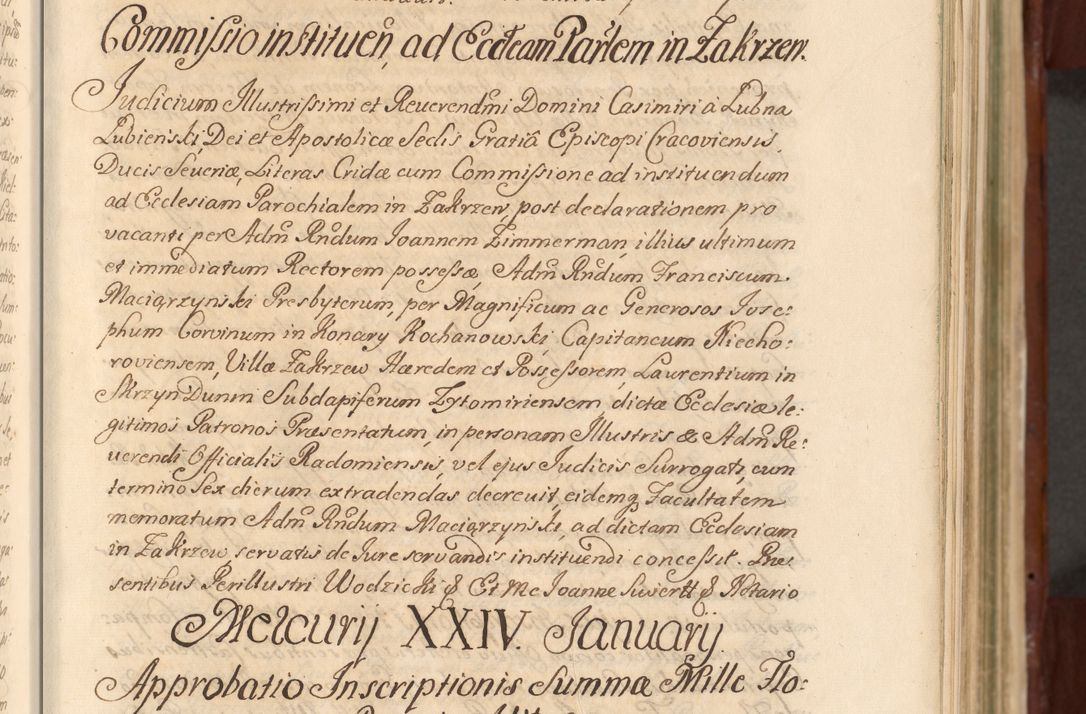 Commissio instituen, ad Eccleam Parlem in Zakrzew.
Judicium Illustrissimi et Reuerendmi Domini Casimiri à Łubna
Łubienski, Dei et Apostolicæ Sedis Gratiâ Episcopi Cracoviensis,
Ducis Severiæ, Literas Cridæ cum Commissione ad instituendum
ad Ecclesiam Parochialem in Zakrzew, post declarationem pro
vacanti per Adm Rndum Joannem Zimmerman, illius ultimum
et immediatum Rectorem possessæ, Adm Rndum Franciscum
Maciąrzynski Presbyterum, per Magnificum ac Generosos Jose:
phum Corvinum in Konary Kochanowski, Capitaneum Niecho:
roviensem, Villæ Zakrzew Hæredem et Possessorem, Laurentium in
Skrzyn Dunin Subdapiferum Zytomiriensem, dictæ Ecclesiæ le:
gitimos Patronos Præsentatum, in personam Illustris & Adm Re:
uerendi Officialis Radomiensis, vel ejus Judicis Surrogati, cum
termino sex dierum extradendas decreuit, eidemq Facultatem
memoratum Adm Rndum Maciąrzynski, ad dictam Ecclesiam
in Zakrzew servatis de Jure servandis instituendi concessit. Præ
sentibus Perillustri Wodzicki & Et Me Joanne Suwertt & Notario
Mercurij XXIV. Januarij.
Approbatio Inscriptionis Summæ Mille Flo: